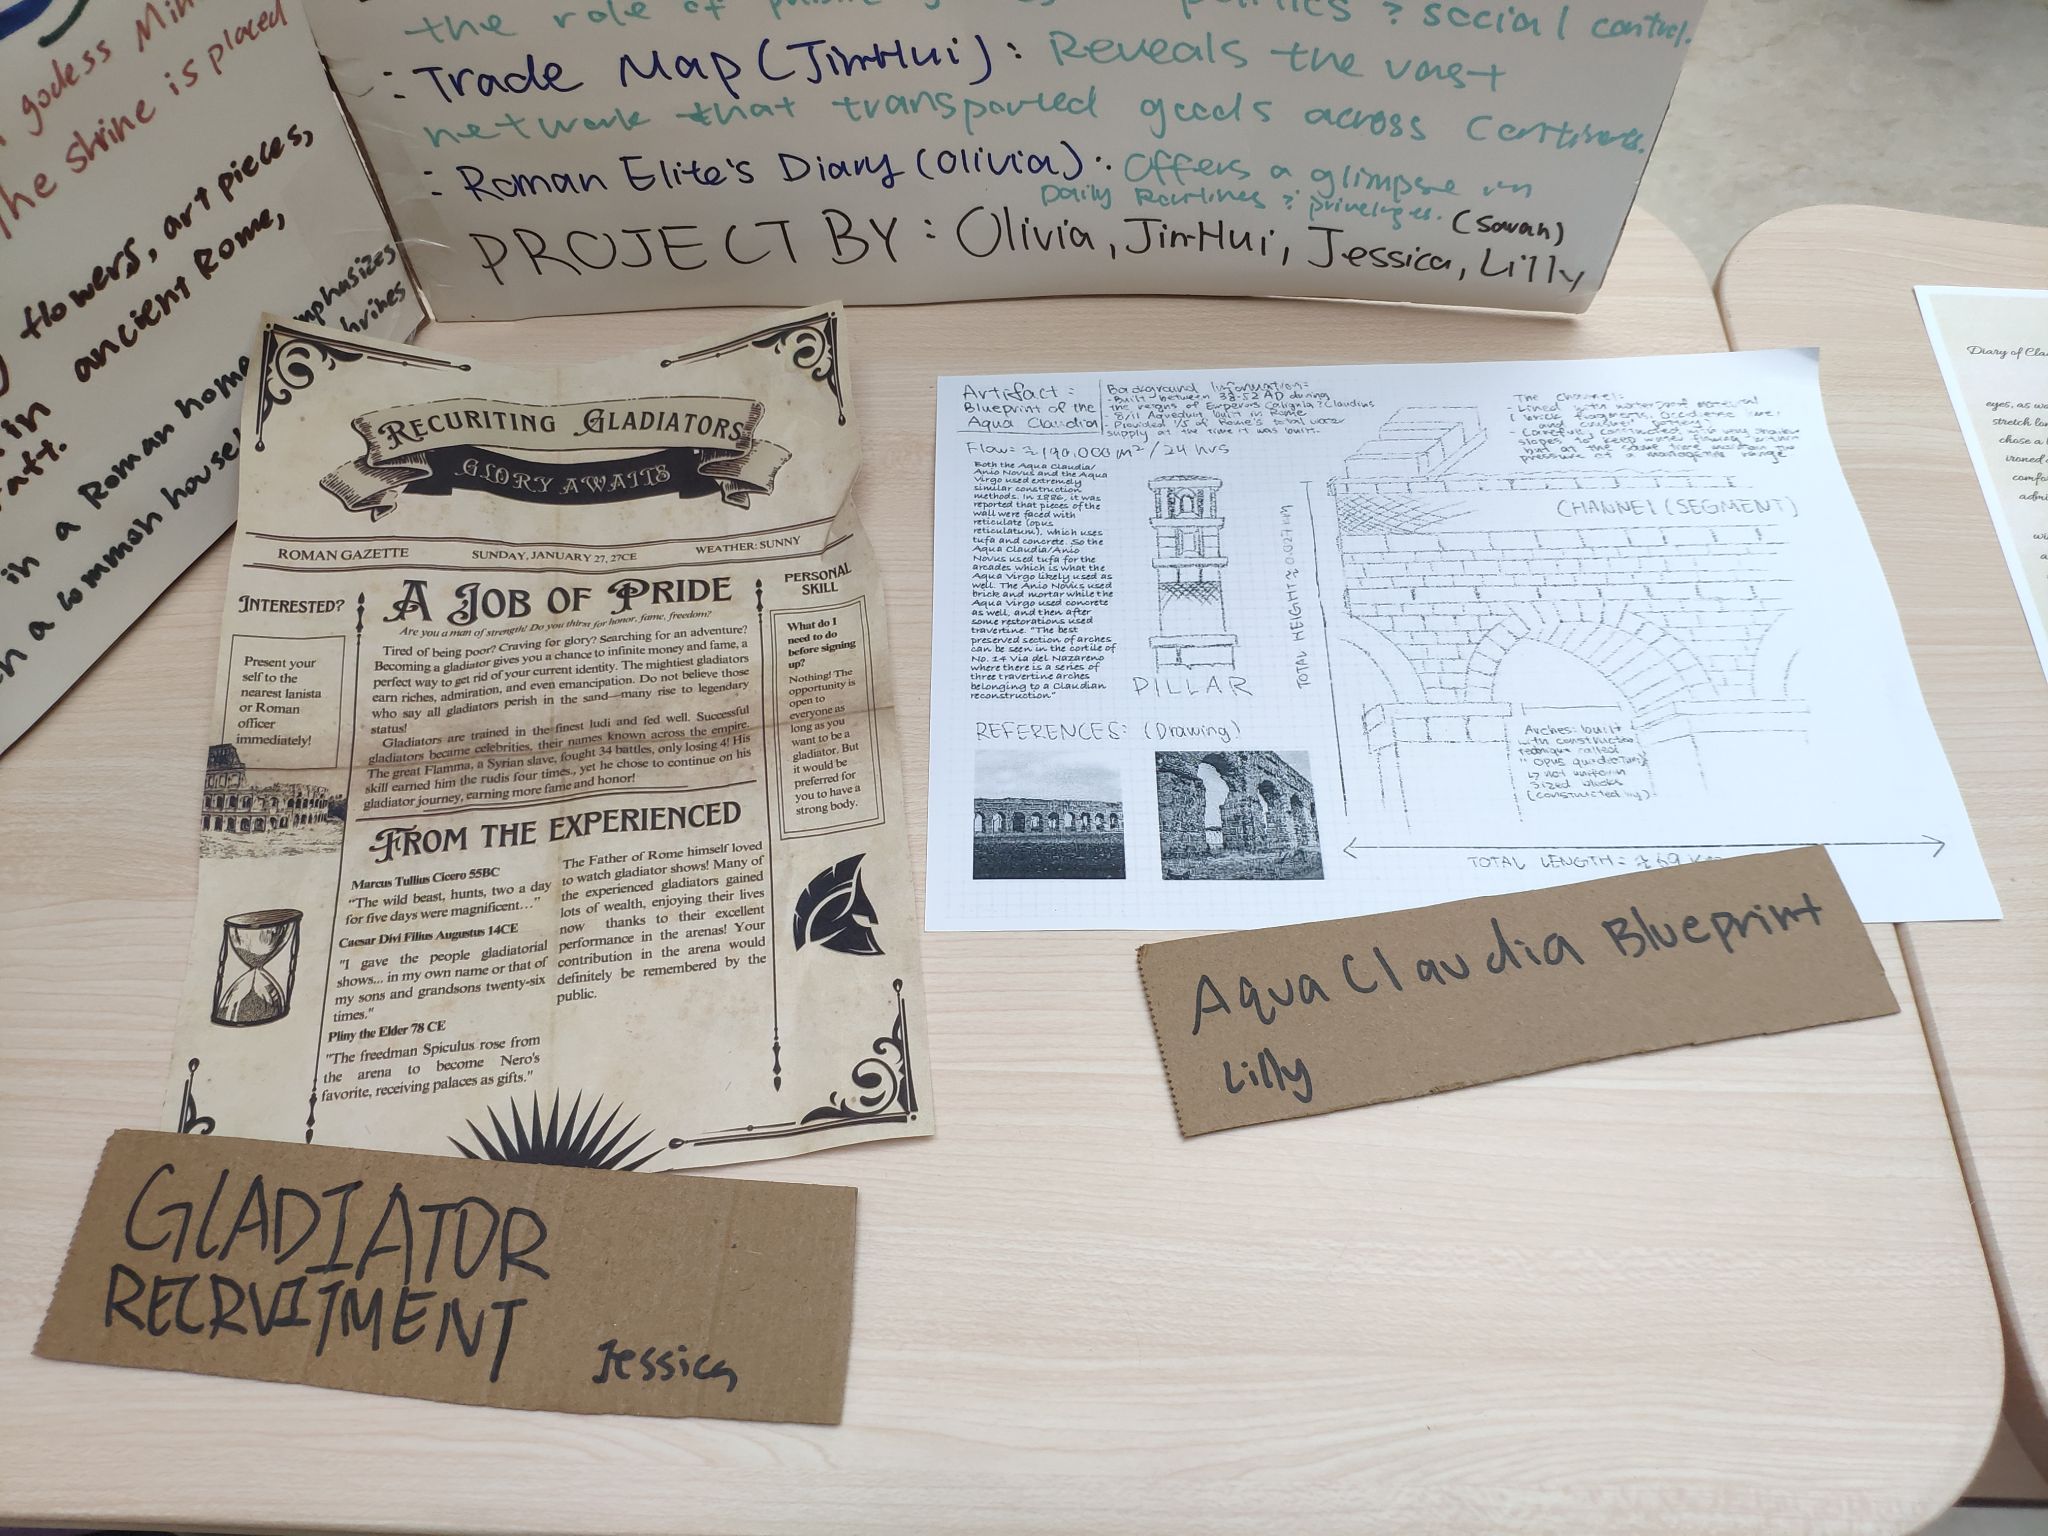 godess Min
he shrine is placed
flowers, art pieces,
ancient Rome,
in
raft.
in a Roman home
emphasizes
hrines
n a common house
the role of public politics & social control.
: Trade Map (JinHui): Reveals the vast
network that transported goods across Continents.
: Roman Elite's Diary (Olivia): Offers a glimpse in
Daily Routines & privileges.
(Sovan)
PROJECT BY: Olivia, JinHui, Jessica, Lilly
RECURITING GLADIATORS
GLORY AWAITS
ROMAN GAZETTE SUNDAY, JANUARY 27, 27CE WEATHER: SUNNY
INTERESTED?
Present your
self to the
nearest lanista
or Roman
officer
immediately!
A JOB OF PRIDE
Are you a man of strength! Do you thirst for honor, fame, freedom?
Tired of being poor? Craving for glory? Searching for an adventure?
Becoming a gladiator gives you a chance to infinite money and fame, a
perfect way to get rid of your current identity. The mightiest gladiators
earn riches, admiration, and even emancipation. Do not believe those
who say all gladiators perish in the sand—many rise to legendary
status!
Gladiators are trained in the finest ludi and fed well. Successful
gladiators became celebrities, their names known across the empire.
The great Flamma, a Syrian slave, fought 34 battles, only losing 4! His
skill earned him the rudis four times., yet he chose to continue on his
gladiator journey, earning more fame and honor!
PERSONAL
SKILL
What do I
need to do
before signing
up?
Nothing! The
opportunity is
open to
everyone as
long as you
want to be a
gladiator. But
it would be
preferred for
you to have a
strong body.
FROM THE EXPERIENCED
Marcus Tullius Cicero 55BC
"The wild beast, hunts, two a day
for five days were magnificent…"
Caesar Divi Filius Augustus 14CE
"I gave the people gladiatorial
shows... in my own name or that of
my sons and grandsons twenty-six
times."
Pliny the Elder 78 CE
"The freedman Spiculus rose from
the arena to become Nero's
favorite, receiving palaces as gifts."
The Father of Rome himself loved
to watch gladiator shows! Many of
the experienced gladiators gained
lots of wealth, enjoying their lives
now thanks to their excellent
performance in the arenas! Your
contribution in the arena would
definitely be remembered by the
public.
GLADIATOR
RECRVITMENT
Jessica
Artifact:
Blueprint of the
Aqua Claudia
Background Information:
- Built between 38-52 AD during
the reigns of Emperors Caligula & Claudius
- 8/11 Aqueduct built in Rome
- Provided 1/5 of Rome's total water
supply at the time it was built.
Flow: ≈190,000 m²/24 hrs
Both the Aqua Claudia/
Anio Novus and the Aqua
Virgo used extremely
similar construction
methods. In 1886, it was
reported that pieces of the
wall were faced with
reticulate (opus
reticulatum), which uses
tufa and concrete. So the
Aqua Claudia/Anio
Novus used tufa for the
arcades which is what the
Aqua Virgo likely used as
well. The Anio Novus used
brick and mortar while the
Aqua Virgo used concrete
as well, and then after
some restorations used
travertine. "The best
preserved section of arches
can be seen in the cortile of
No. 14 Via del Nazareno
where there is a series of
three travertine arches
belonging to a Claudian
reconstruction."
PILLAR
TOTAL HEIGHT ≈ 0.027 km
The Channel:
- Lined with waterproof material
slopes to keep water flowing
but at the same time
pressure at a manageable range
CHANNEL (SEGMENT)
Arches: built
with construction
technique called
" opus quadratum"
↳ not uniform
sized blocks
REFERENCES: (Drawing)
TOTAL LENGTH = ≈69 K
Aqua Claudia Blueprint
Lilly
Diary of Cla
eyes, as wa
stretch lon
chose a
ironed
comfo
admi
wi